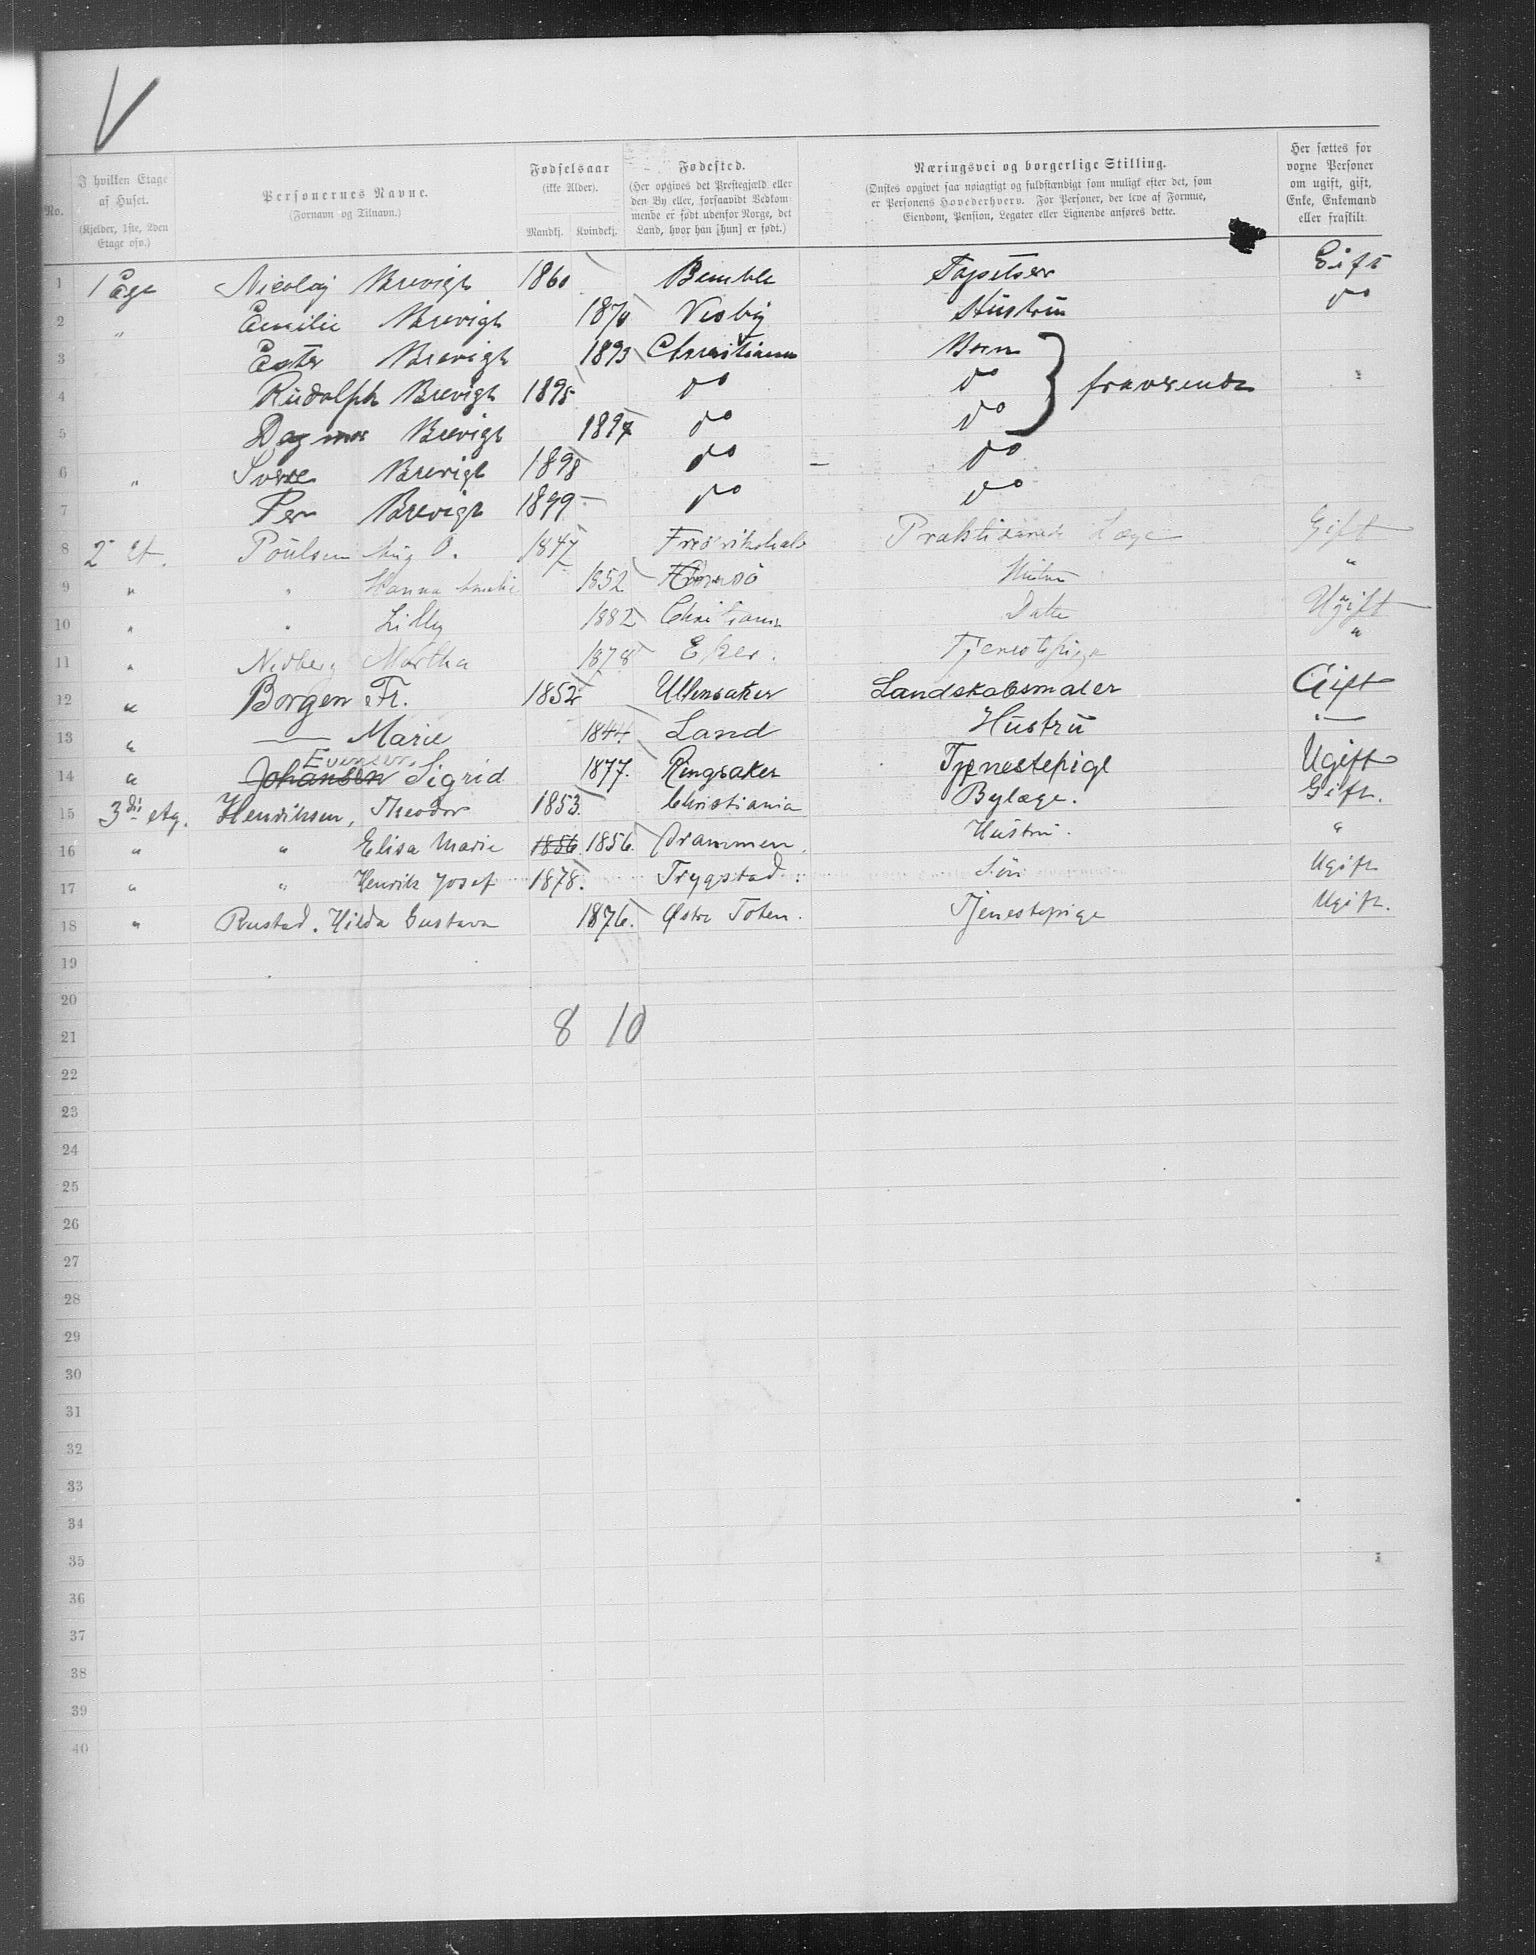 V
No.
I hvilken Etage af Huset. (Kjelder, 1ste, 2den Etage osv.)
Personernes Navne. (Fornavn og Tilnavn.)
Fødselsaar (ikke Alder). Mandkj. Kvindekj.
Fødested. (Her opgives det Prestegjæld eller den By eller, forsaavidt Vedkommende er født udenfor Norge, det Land, hvor han [hun] er født.)
Næringsvei og borgerlige Stilling. (Ønskes opgivet saa nøiagtigt og fuldstændigt som muligt efter det, som er Personens Hovederhverv. For Personer, der leve af Formue, Eiendom, Pension, Legater eller Lignende anføres dette.
Her sættes for voxne Personer om ugift, gift, Enke, Enkemand eller fraskilt.
1 1 Etge Nicolay Brevigh 1860 Bamble Tapetser Gift
2 " Emilie Brevigh 1870 Visby Hustru do
3 Ester Brevigh 1893 Christiania Born
4 Rudolph Brevigh 1895 do do } fraværende
5 Dagmar Brevigh 1897 do do
6 " Sverre Brevigh 1898 do – do
7 Per Brevigh 1899 do do
8 2 Et. Poulsen Aug O. 1847 Fredrikshald Praktiserende Læge Gift
9 " " Hanna Amalie 1852 Hustru "
10 " " Lilly 1882 Christiania Datter Ugift
11 " Martha 1878 Eker. Tjenestepige "
12 " Borgen Fr. 1852 Ullensaker Landskabsmaler Gift
13 " — Marie 1844 Land Hustru —
14 " Johansen Evensen Sigrid 1877. Ringsaker Tjenestepige Ugift
15 3die etg. Henriksen, Theodor 1853. Christiania Bylæge. Gift.
16 " " Elisa Marie 1856 1856. Drammen. Hustru. "
17 " " Henrik Josef 1878. Trygstad. Søn Ugift
18 " Rustad. Hilda Gustava 1876. Østre Toten. Tjenestepige Ugift.
19
20
21 8 10
22
23
24
25
26
27
28
29
30
31
32
33
34
35
36
37
38
39
40